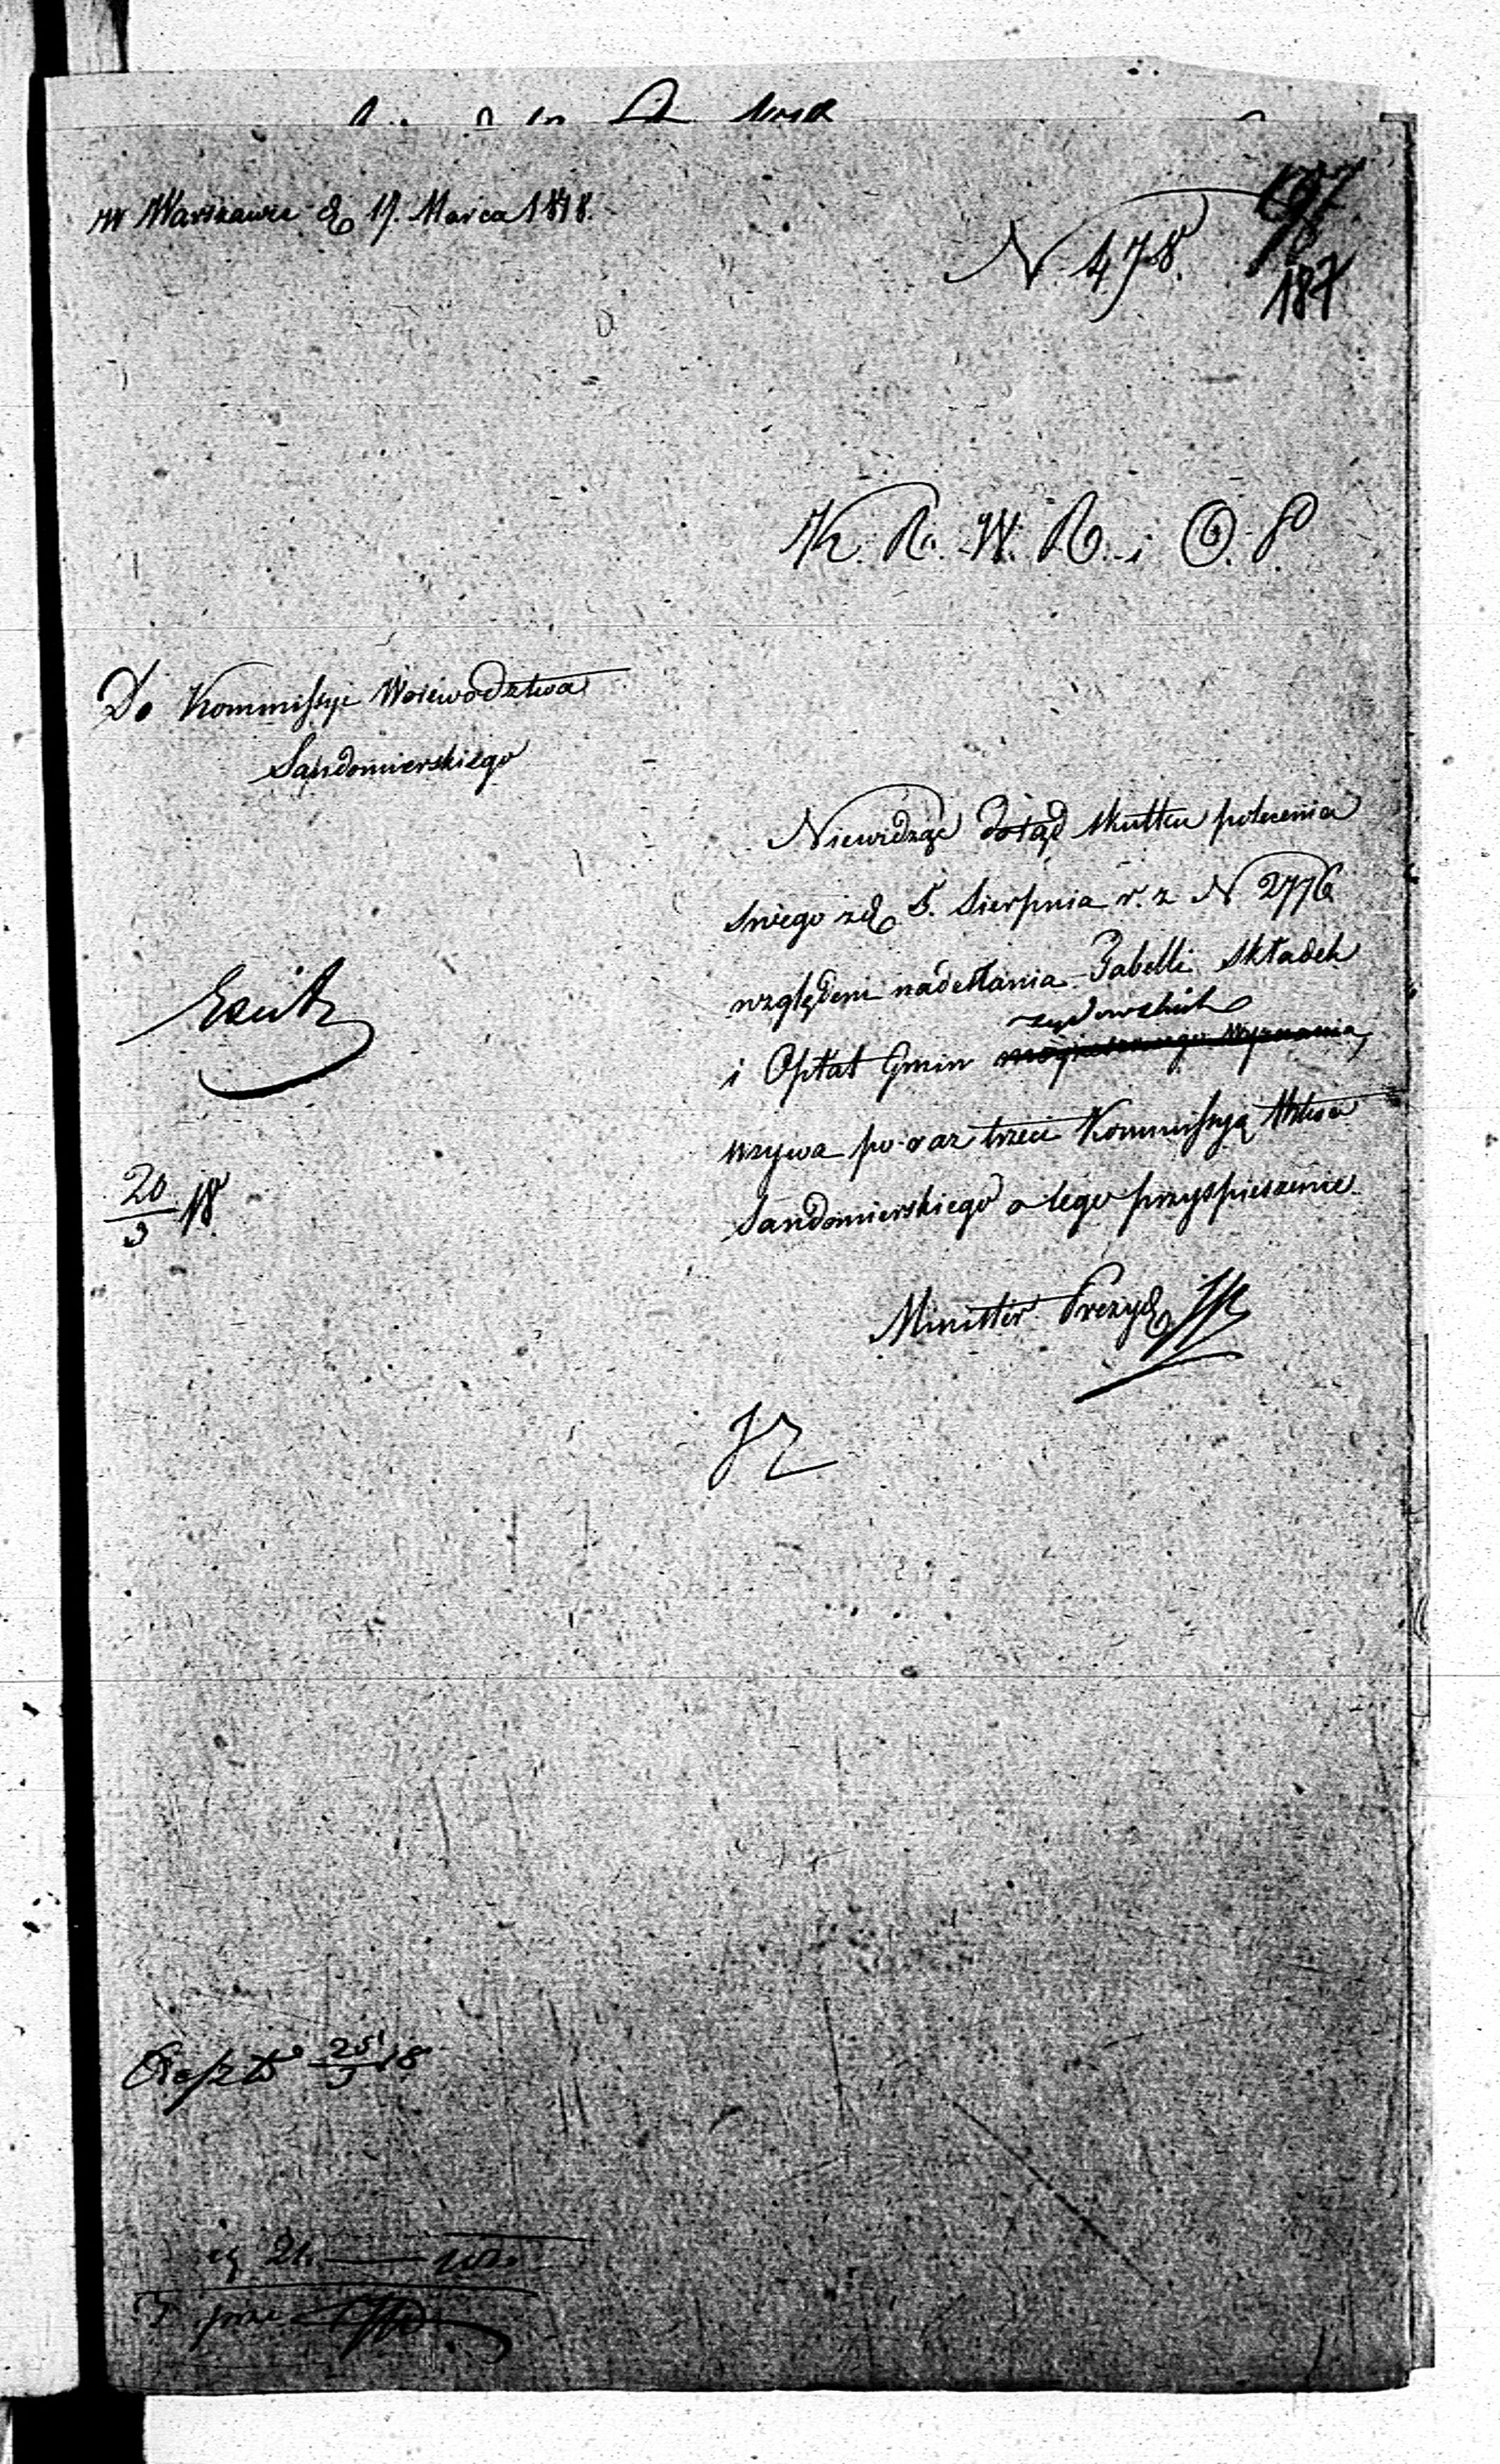 W Warszawie d. 17. Marca 1818.
N. 478.
187
K. R. W. R. i O. P.
Do Kommissyi Woiewodztwa
Sandomierskiego
Niewidząc dotąd skutku polecenia
swego z d. 5. Sierpnia r. z. N 2776
względem nadesłania Tabelli składek
żydowskich
i Opłat Gmin mojżeszowego wyznania,
wzywa po raz trzeci Kommissyą Wdztwa
Sandomierskiego o tego przyspieszenie.
Minister Prezyd.
20/3 18.
25/3 18